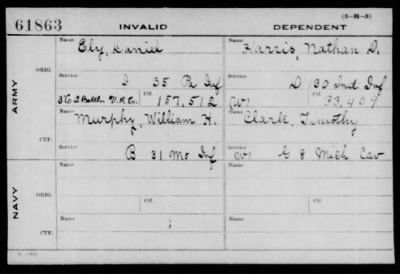 (3-31-5)
61863 INVALID DEPENDENT
ARMY
ORIG.
Name Ely, Daniel
Name Harris, Nathan D.
Service I 35 Pa Inf
Service D 130 Ind Inf
Ctf. 157,512
(W) Ctf. 33,409
CTF.
Name Murphy, William H.
Name Clark, Timothy
Service B 31 Mo Inf
Service (W) G 8 Mich Cav
NAVY
ORIG.
Name
Name
Service Ctf.
Service Ctf.
CTF.
Name
Name